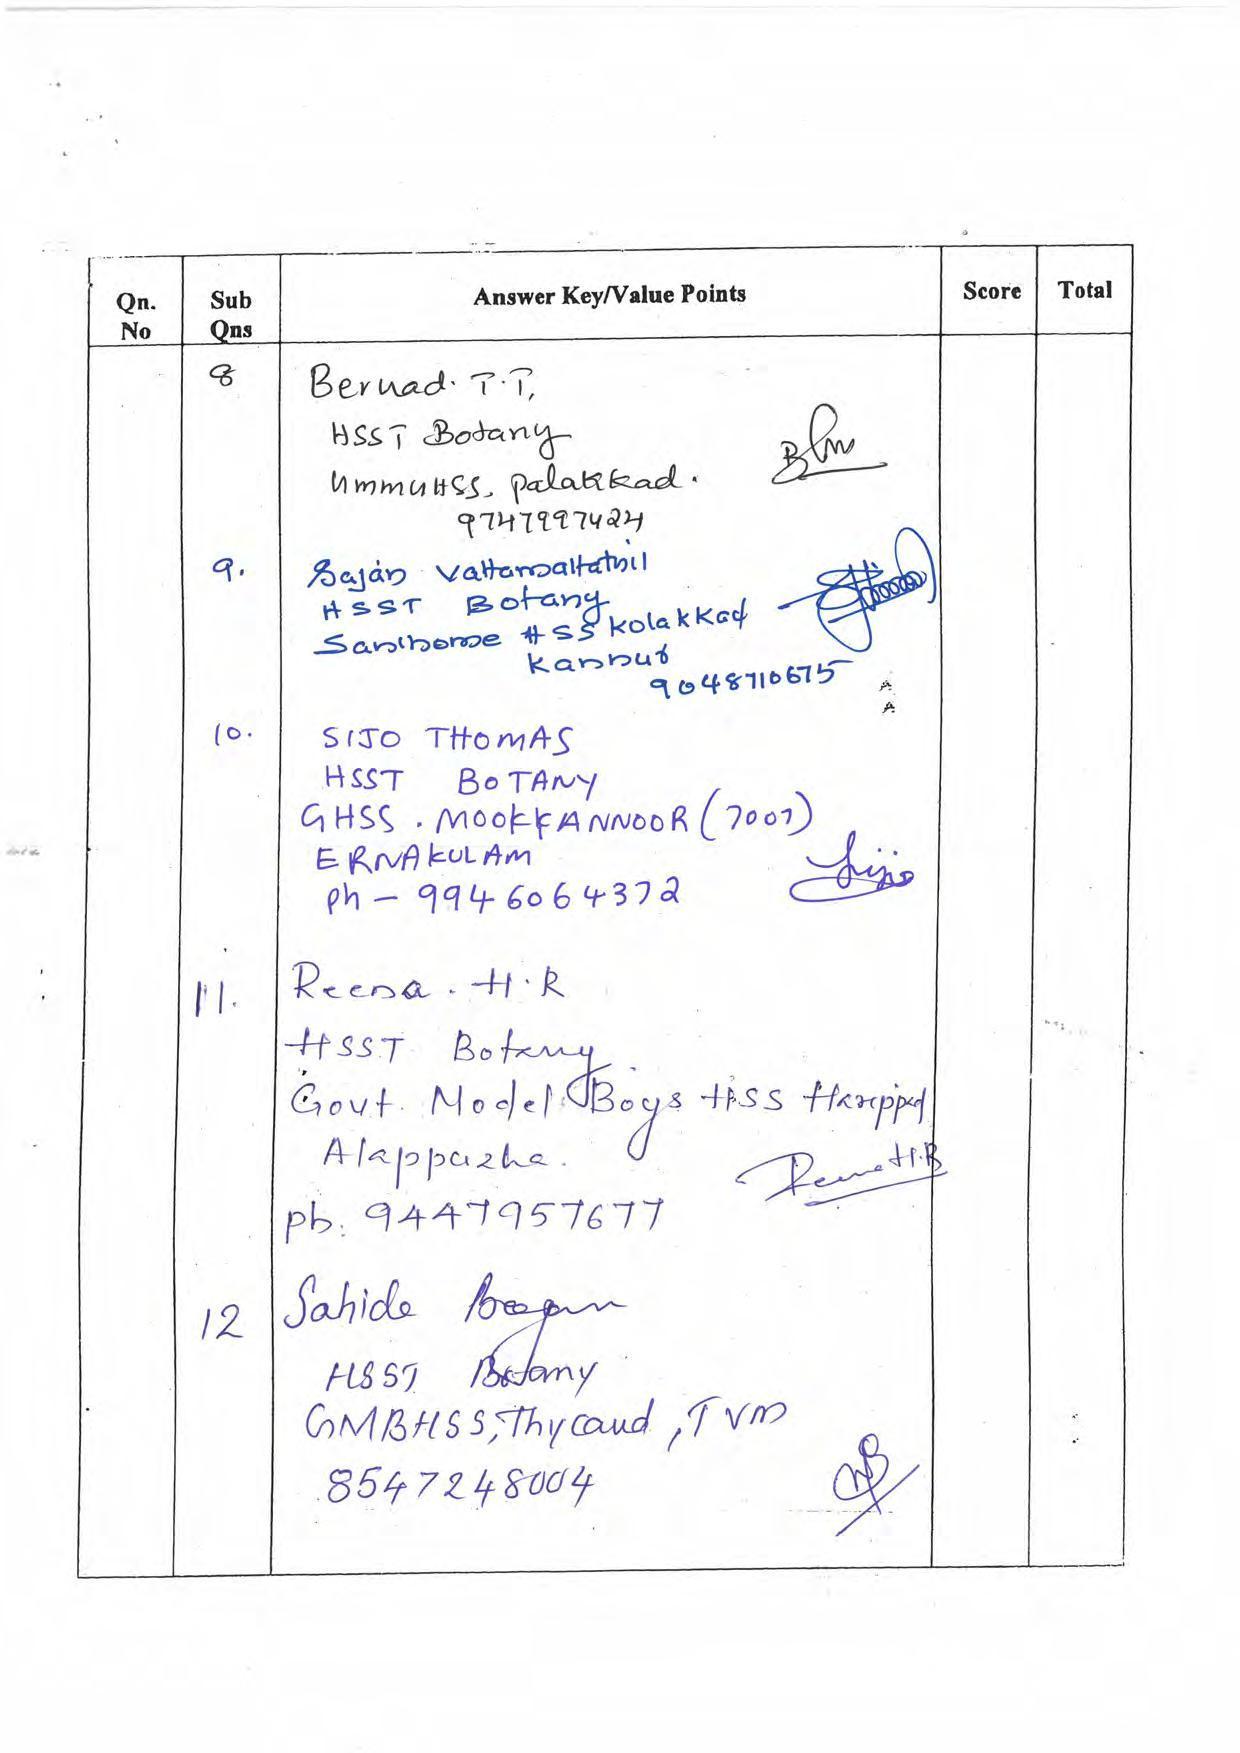 Qn. No
Sub Qns
Answer Key/Value Points
Score
Total
8
Bernad. T.T,
HSST Botany
UmmUHSS, Palakkad.
9747997424
9.
Sajan Vattamattathil
HSST Botany
Santhome HSS Kolakkad
Kannur
9048710675
10.
SIJO THOMAS
HSST BOTANY
GHSS. MOOKKANNOOR (7007)
ERNAKULAM
Ph - 9946064372
Sijo
11.
Reena. H.R
HSST Botany
Govt. Model Boys HSS Harippad
Alappuzha.
ph: 9447957677
Reena H.R
12
Sahide Beegum
HSST Botany
GMBHSS, Thycaud, TVM
8547248004